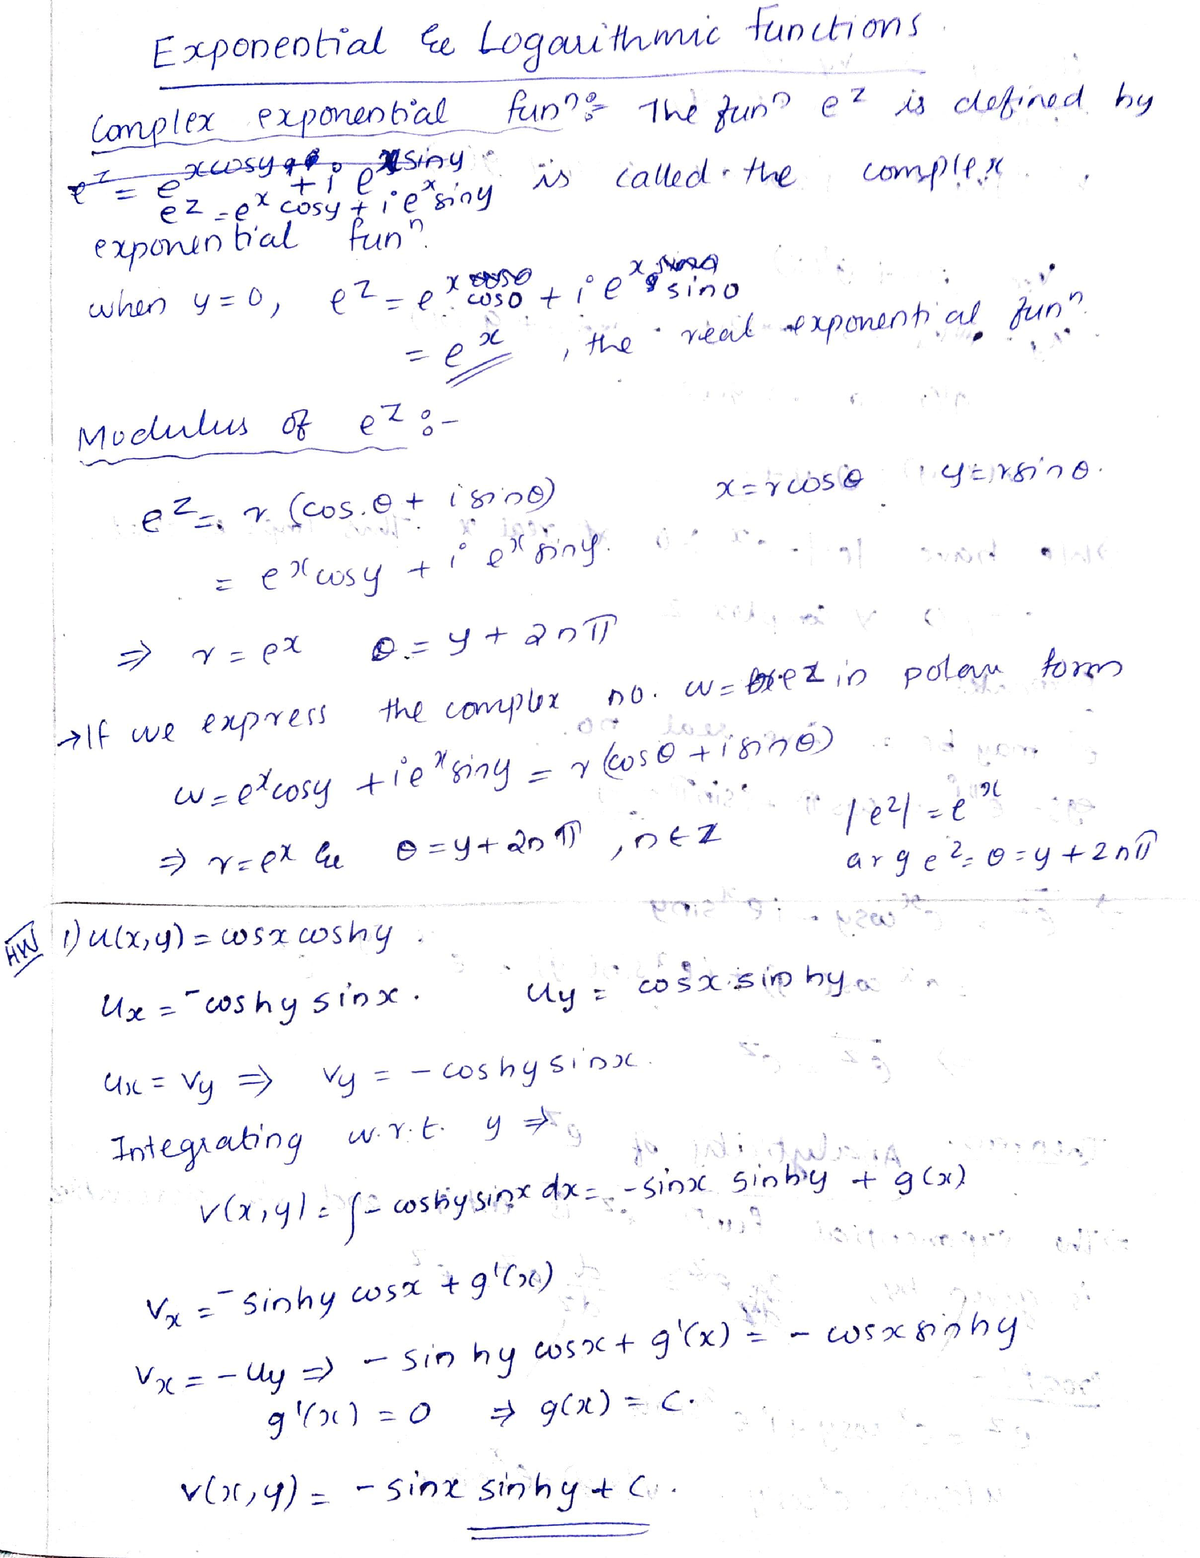 Exponential & Logarithmic functions.
Complex exponential funⁿ:- The funⁿ e^z is defined by
e^z = e^x cosy + i e^x siny is called the complex
exponential funⁿ.
when y = 0, e^z = e^x cos0 + i e^x sin0
= e^x, the real exponential funⁿ.
Modulus of e^z :-
e^z = r (cos.θ + i sinθ) x = r cosθ, y = r sinθ.
= e^x cosy + i e^x siny.
⇒ r = e^x θ = y + 2nπ
→ If we express the complex no. w = e^z in polar form
w = e^x cosy + i e^x siny = r (cosθ + i sinθ)
⇒ r = e^x & θ = y + 2nπ, n ∈ Z
|e^z| = e^x
arg e^z = θ = y + 2nπ
HW 1) u(x,y) = cosx coshy.
u_x = -coshy sinx. u_y = cosx sinhy
u_x = v_y ⇒ v_y = - coshy sinx.
Integrating w.r.t. y ⇒
v(x,y) = ∫ - coshy sinx dx = - sinx sinhy + g(x)
v_x = - sinhy cosx + g'(x)
v_x = - u_y ⇒ - sinhy cosx + g'(x) = - cosx sinhy
g'(x) = 0 ⇒ g(x) = C.
v(x,y) = - sinx sinhy + C.